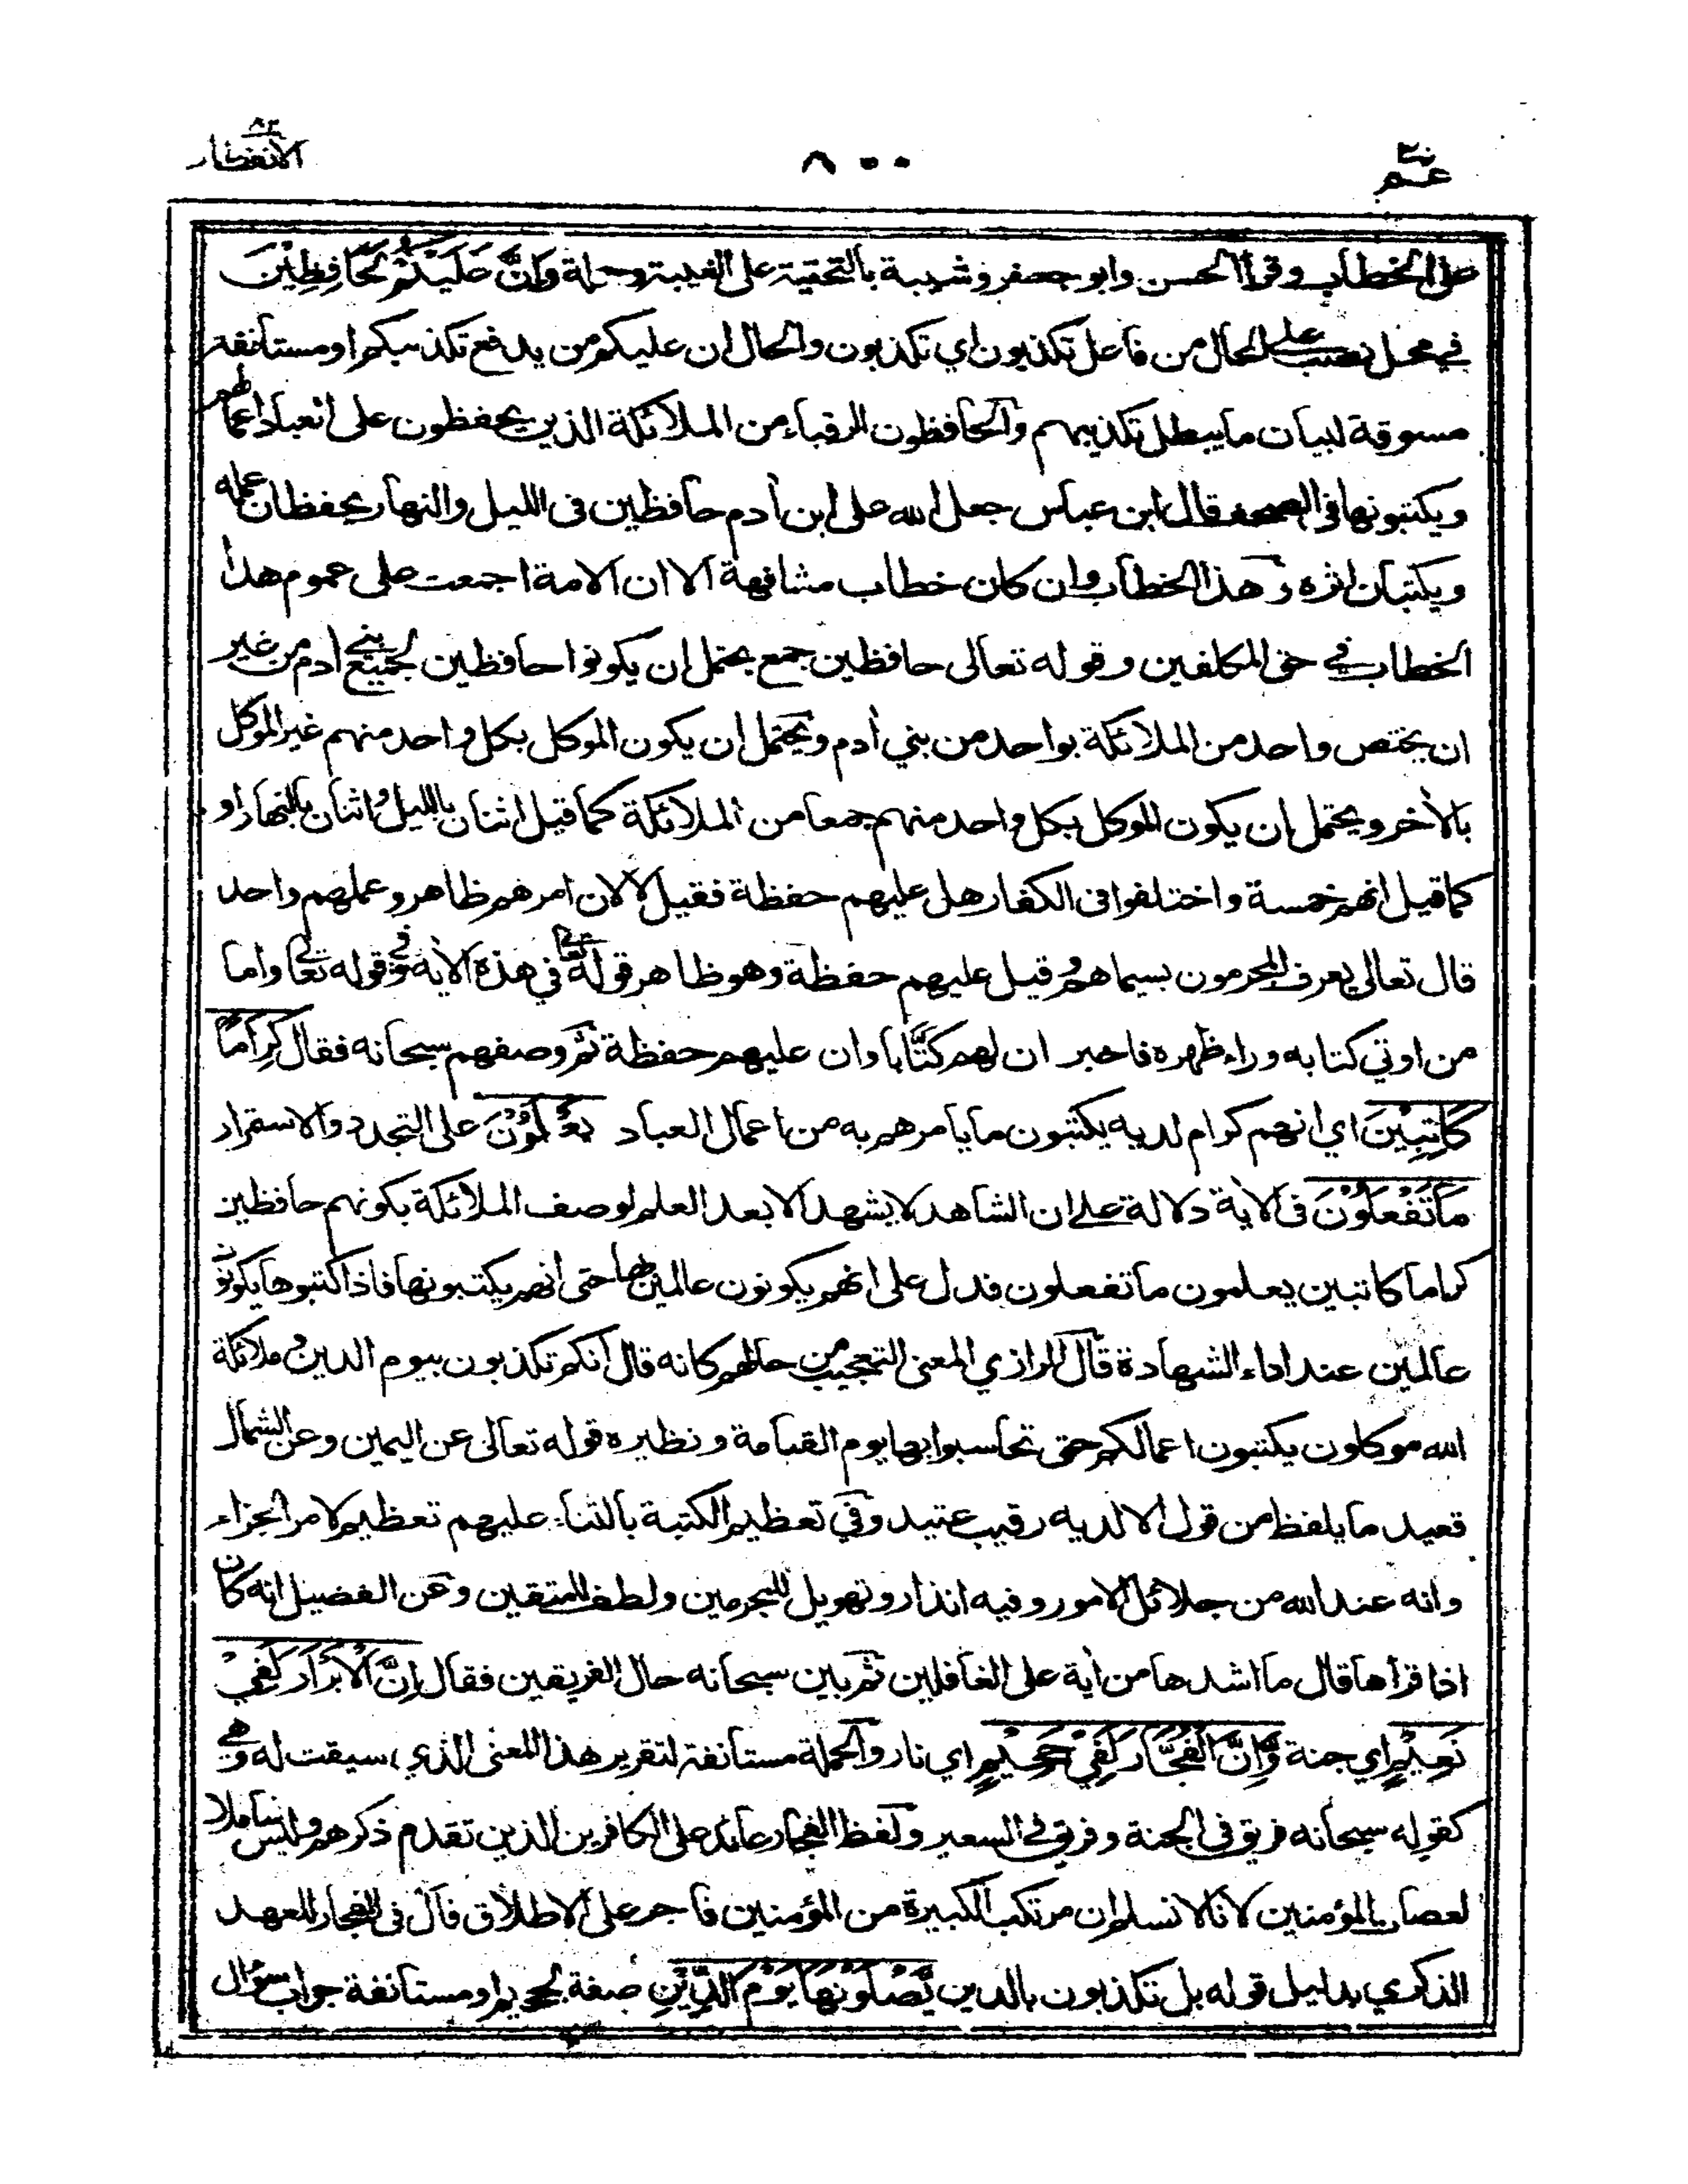 عم ٣٠
٨٠٠
الانفطار ٨٢
على الخطاب وقرأ الحسن وابو جعفر وشيبة بالتحتية على الغيبة وجملة وَاِنَّ عَلَيْكُمْ لَحَافِظِيْنَ
في محل نصب على الحال من فاعل تكذبون اي تكذبون والحال ان عليكم من يدفع تكذيبكم او مستأنفة
مسوقة لبيان ما يبطل تكذيبهم والحافظون الرقباء من الملائكة الذين يحفظون على العباد اعمالهم
ويكتبونها في الصحف قال ابن عباس جعل الله على ابن أدم حافظين فى الليل والنهار يحفظان عمله
ويكتبان اثره وهذا الخطاب وان كان خطاب مشافهة الا ان الامة اجمعت على عموم هذا
الخطاب في حق المكلفين وقوله تعالى حافظين جمع يحتمل ان يكونوا حافظين لجميع بني أدم من غير
ان يختص واحد من الملائكة بواحد من بني أدم ويحتمل ان يكون الموكل بكل واحد منهم غير الموكل
بالأخر ويحتمل ان يكون الموكل بكل واحد منهم جمعا من الملائكة كما قيل اثنان بالليل واثنان بالنهار او
كما قيل انهم خمسة واختلفوا فى الكفار هل عليهم حفظة فقيل لا لان امرهم ظاهر وعملهم واحد
قال تعالى يعرف المجرمون بسيماهم وقيل عليهم حفظة وهو ظاهر قوله تعالى في هذه الأية وفي قوله تعالى واما
من اوتي كتابه وراء ظهره فاخبر ان لهم كتّابا وان عليهم حفظة ثم وصفهم سبحانه فقال كِرَامًا
كَاتِبِيْنَ اي انهم كرام لديه يكتبون ما يأمرهم به من اعمال العباد يَعْلَمُوْنَ على التجدد والاستمرار
مَا تَفْعَلُوْنَ فى الأية دلالة على ان الشاهد لا يشهد الا بعد العلم لوصف الملائكة بكونهم حافظين
كراما كاتبين يعلمون ما تفعلون فدل على انهم يكونون عالمين بها حتى انهم يكتبونها فاذا كتبوها يكونون
عالمين عند اداء الشهادة قال الرازي المعنى التعجيب من حالهم كانه قال انكم تكذبون بيوم الدين وملائكة
الله موكلون يكتبون اعمالكم حتى تحاسبوا بها يوم القيامة ونظيره قوله تعالى عن اليمين وعن الشمال
قعيد ما يلفظ من قول الا لديه رقيب عتيد وفي تعظيم الكتبة بالثناء عليهم تعظيم لامر الجزاء
وانه عند الله من جلائل الامور وفيه انذار وتهويل للمجرمين ولطف للمتقين وعن الفضيل انه كان
اذا قرأها قال ما اشدها من أية على الغافلين ثم بين سبحانه حال الفريقين فقال اِنَّ الْاَبْرَارَ لَفِيْ
نَعِيْمٍ اي جنة وَاِنَّ الْفُجَّارَ لَفِيْ جَحِيْمٍ اي نار والجملة مستأنفة لتقرير هذا المعنى الذي سيقت له وهي
كقوله سبحانه فريق فى الجنة وفريق في السعير ولفظ الفجار عائد على الكافرين الذين تقدم ذكرهم وليس شاملا
لعصاة المؤمنين لانا لا نسلم ان مرتكب الكبيرة من المؤمنين فاجر على الاطلاق فأل فى الفجار للعهد
الذكري بدليل قوله بل تكذبون بالدين يَّصْلَوْنَهَا يَوْمَ الدِّيْنِ صفة لجحيم او مستأنفة جواب سؤال